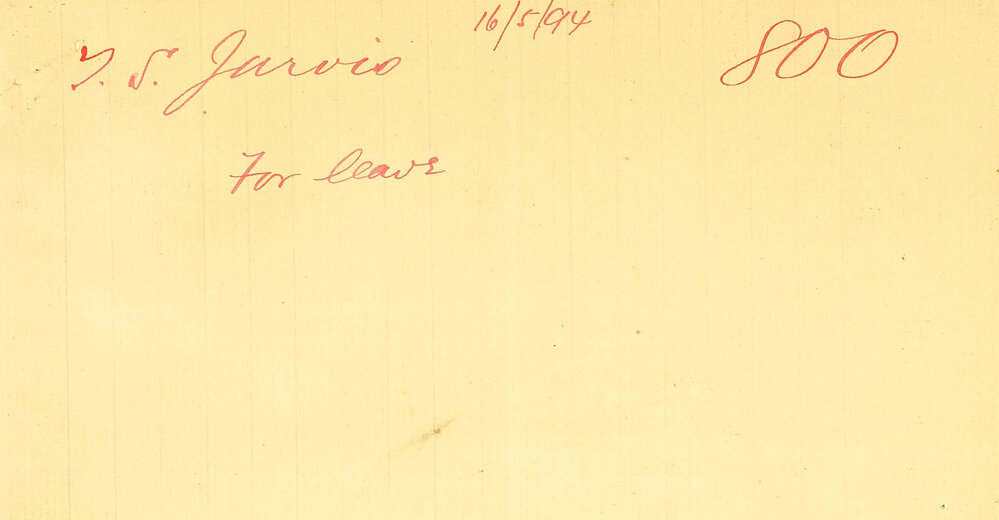 16/5/94
T. S. Jarvis 800
For leave